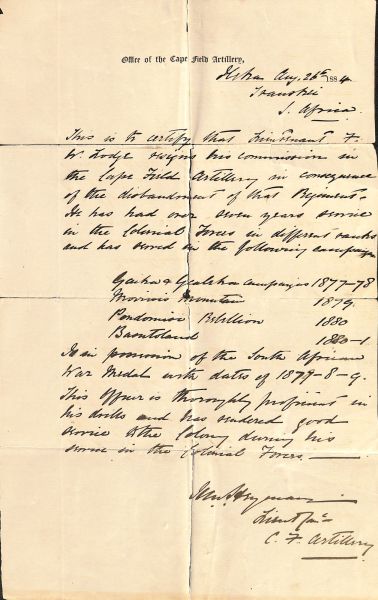 Office of the Cape Field Artillery,
Aug. 26th 1884
Transkei
S. Africa
This is to certify that Lieutenant F.
W. Lodge resigns his commission in
the Cape Field Artillery in consequence
of the disbandment of that Regiment.
He has had over seven years service
in the Colonial Forces in different ranks
and has served in the following campaigns
Gaika & Gcaleka Campaigns 1877-78
Moirosi's Mountain 1879.
Pondomise Rebellion 1880
Basutoland 1880-1
Is in possession of the South African
War Medal with dates of 1877-8-9.
This Officer is thoroughly proficient in
his drills and has rendered good
service to the Colony during his
service in the Colonial Forces.
Lieut
C. F. Artillery